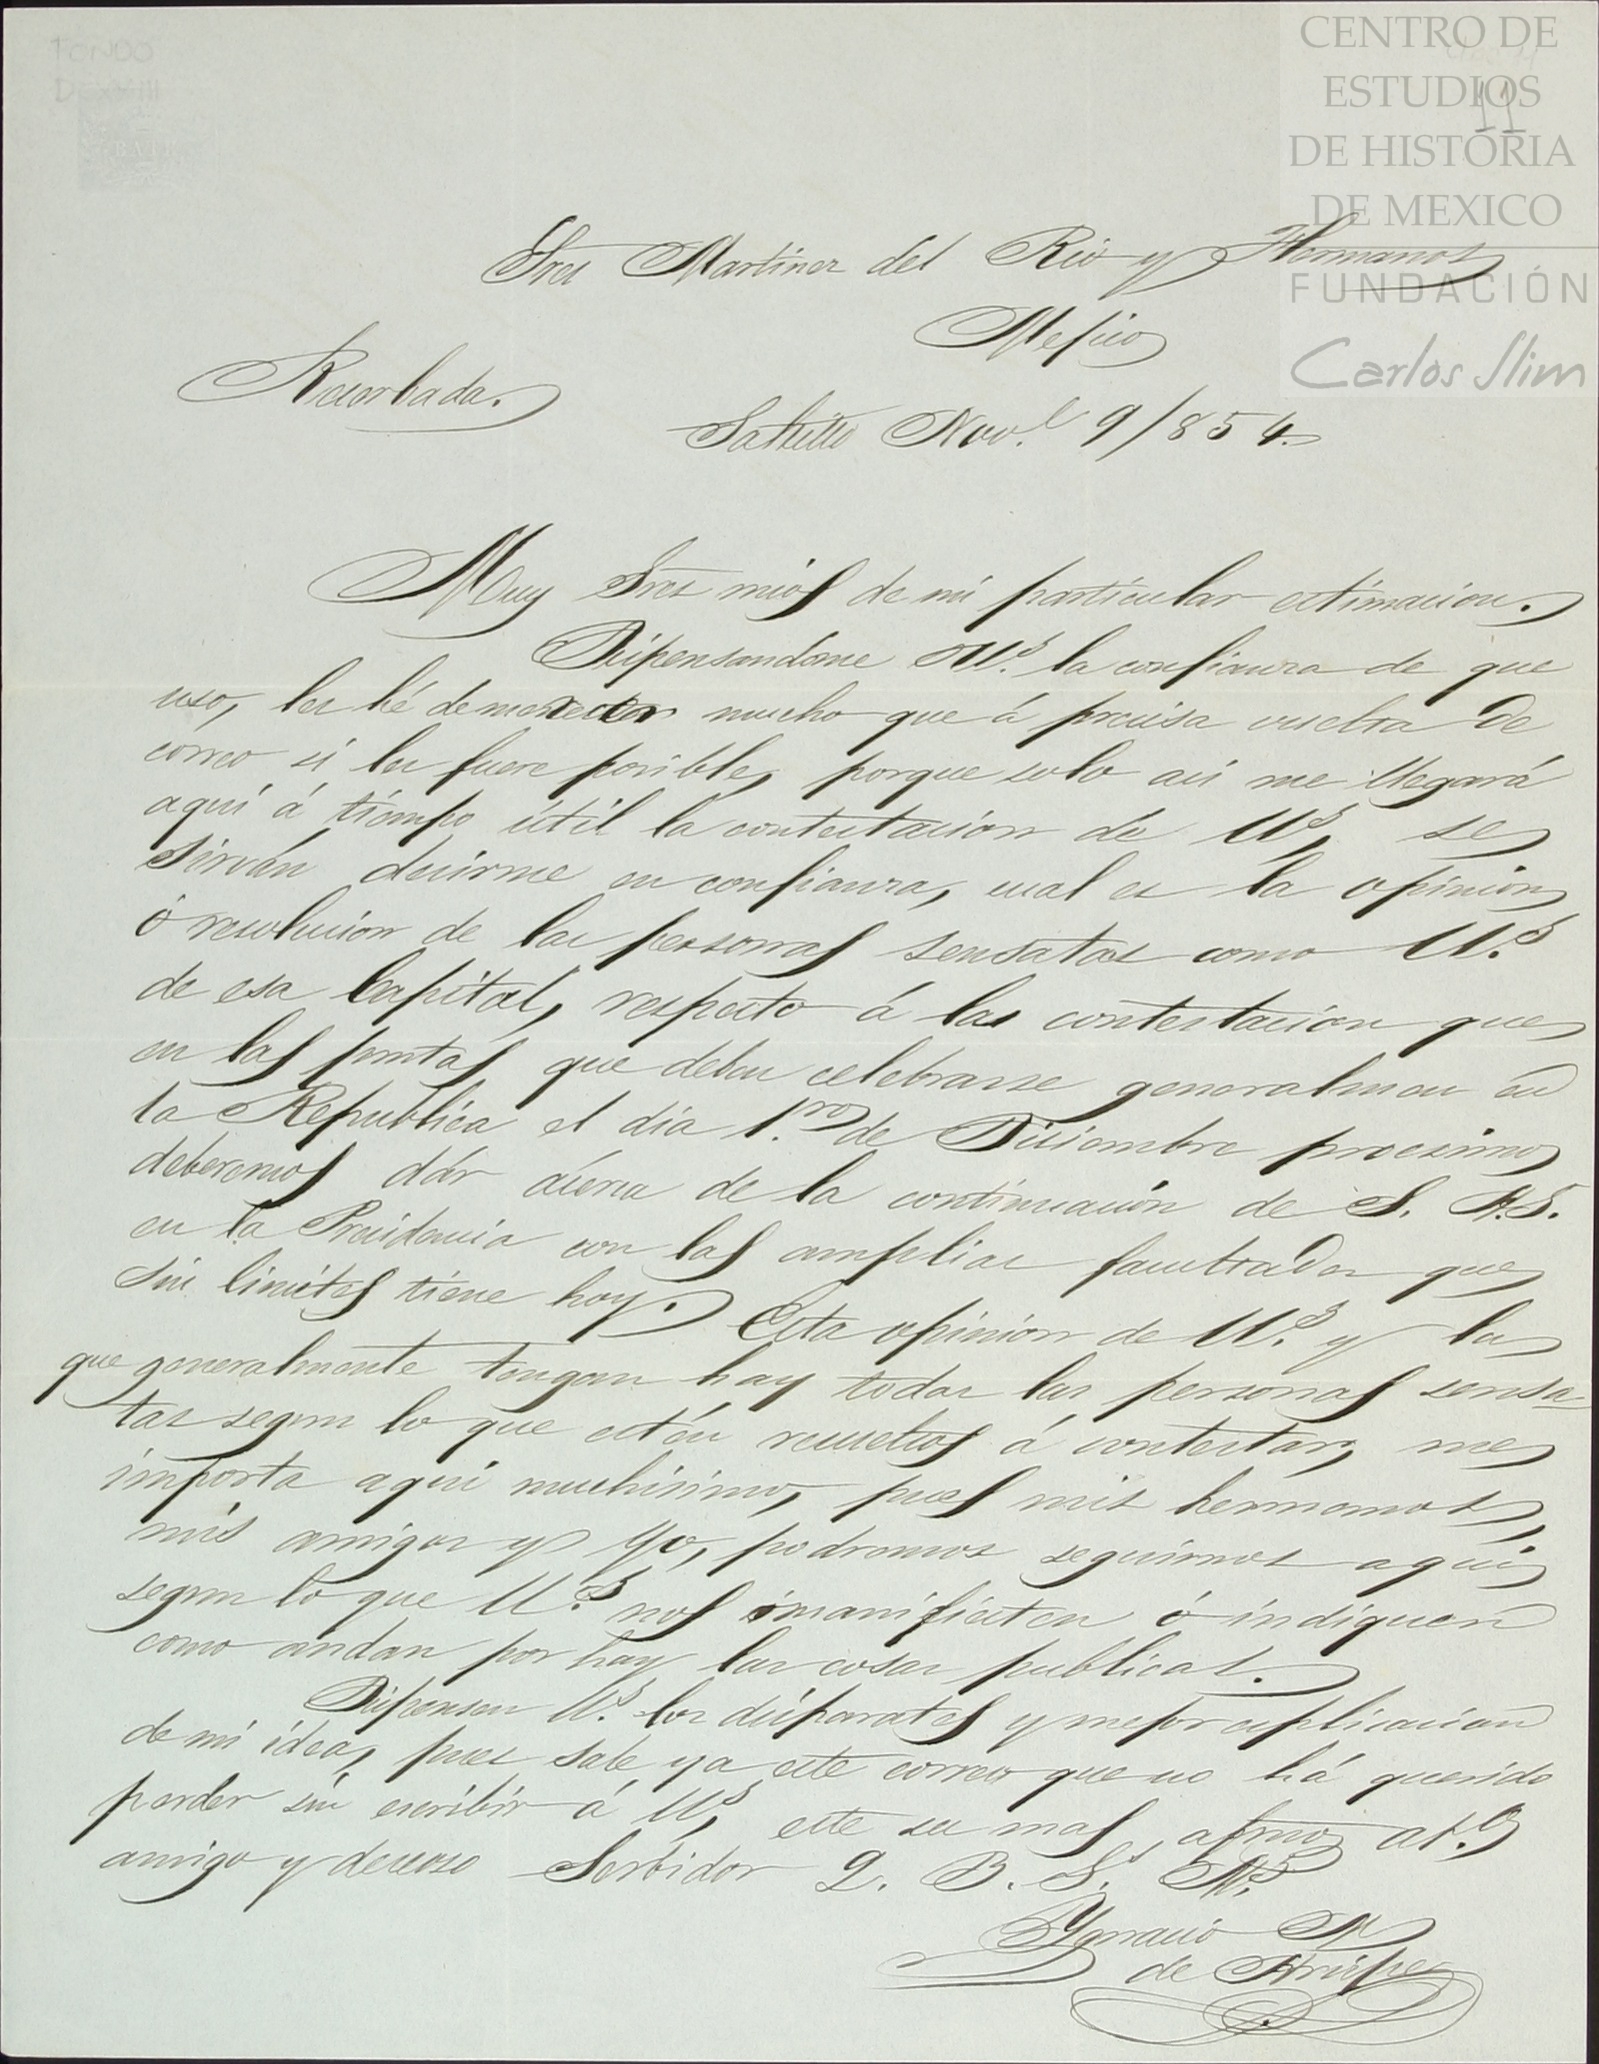 FONDO
DCXVIII
CENTRO DE
ESTUDIOS
DE HISTORIA
DE MEXICO
FUNDACIÓN
Carlos Slim
11
Sres Martinez del Rio y Hermanos
Mejico
Reservada.
Saltillo Nov.e 9/854.
Muy Sres mios de mi particular estimacion.
Dispensandome UU.s la confianza de que
uso, les hé de merecer mucho que á precisa vuelta de
correo si les fuere posible, porque solo asi me llegará
aqui á tiempo útil la contestacion de UU.s, se
sirvan decirme en confianza, cual es la opinion
ó resolucion de las personas sensatas como UU.s
de esa Capital, respecto á las contestacion que
en las juntas que deben celebrarse generalmen en
la Republica el dia 1.ro de Diciembre procsimo
deberemos dár acerca de la continuacion de S. A. S.
en la Presidencia con las amplias facultades que
sin limites tiene hoy. Esta opinion de UU.s y la
que generalmente tengan hay todas las personas sensa-
tas segun lo que estén resueltos á contestar, me
importa aqui muchisimo, pues mis hermanos,
mis amigos y yo, podremos seguirnos aqui
segun lo que UU.s nos manifiesten ó indiquen
como andan por hay las cosas publicas.
Dispensen UU.s los disparates y mejor esplicacion
de mi idea, pues sale ya este correo que no há querido
perder sin escribir á UU.s, este su mas afmo at.o
amigo y deceoso Serbidor Q. B. S. M.s
Ygnacio M
de Arispe